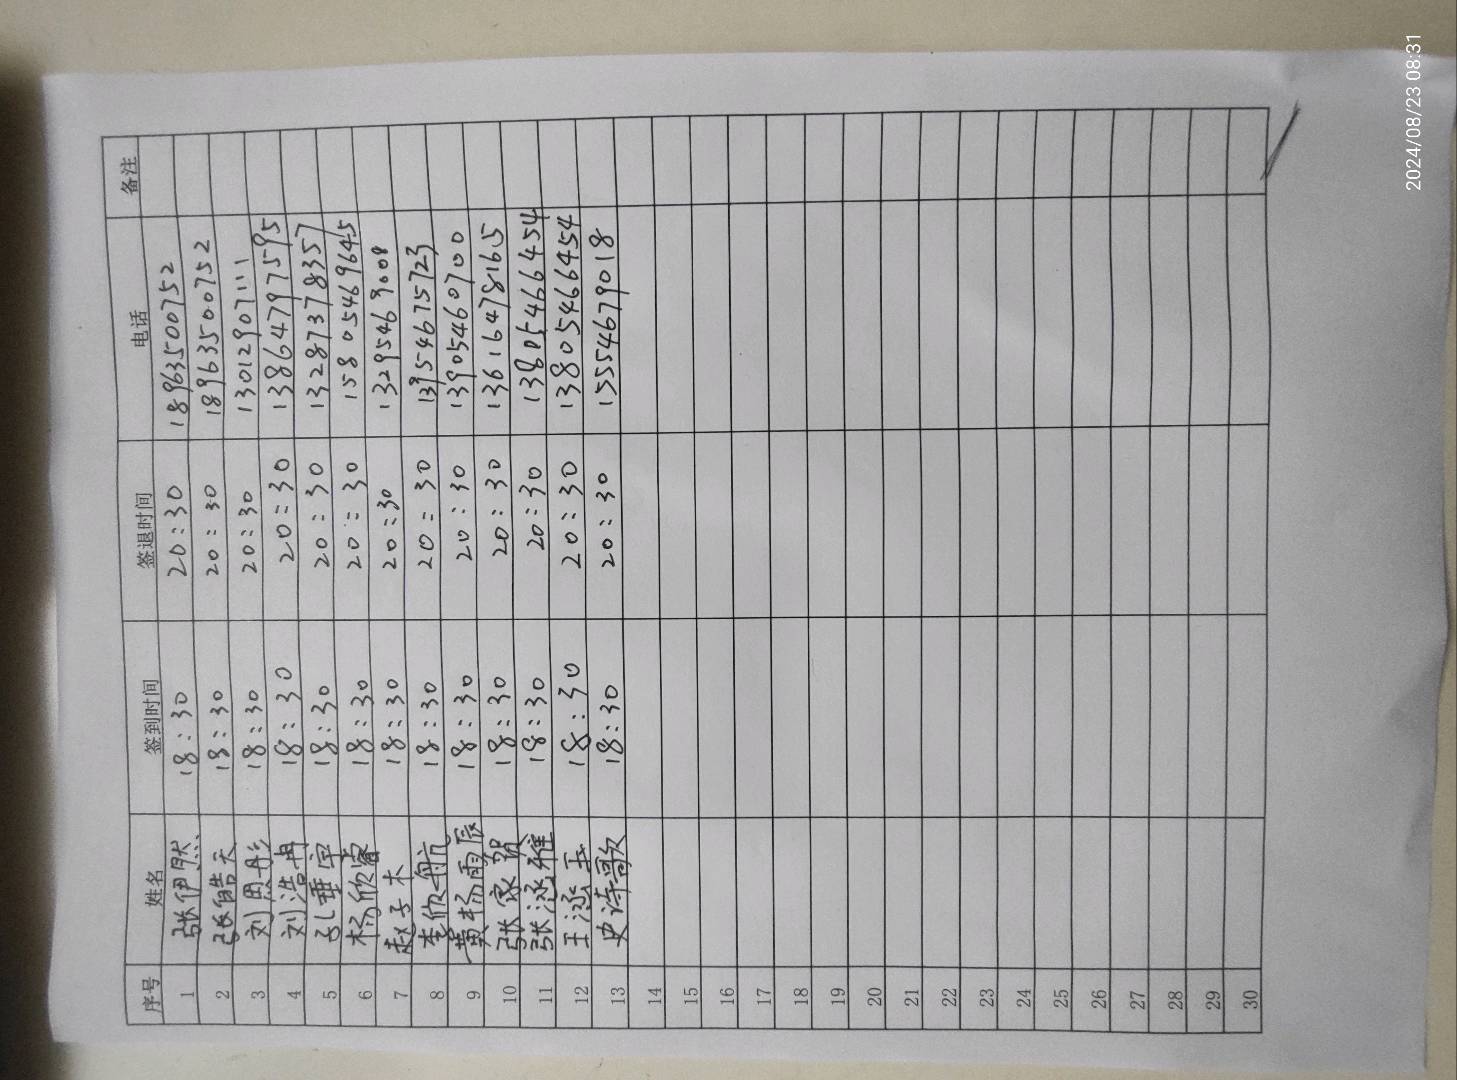 序号 姓名 签到时间 签退时间 电话 备注
1 张伊然 18:30 20:30 18963500752
2 张皓天 18:30 20:30 18963500752
3 刘恩彤 18:30 20:30 13012907111
4 刘浩冉 18:30 20:30 13864797595
5 18:30 20:30 13287378357
6 杨欣睿 18:30 20:30 15805469645
7 赵子木 18:30 20:30 13295469008
8 李欣航 18:30 20:30 13954675723
9 黄杨雨辰 18:30 20:30 13905460700
10 张家硕 18:30 20:30 13616478165
11 张涵雅 18:30 20:30 13805466454
12 王涵玉 18:30 20:30 13805466454
13 史诗歌 18:30 20:30 15554679018
14
15
16
17
18
19
20
21
22
23
24
25
26
27
28
29
30
2024/08/23 08:31